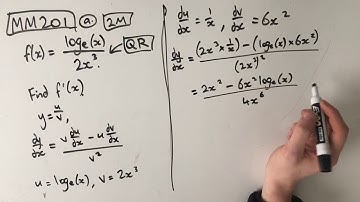 MM201 (a.) 2M
f(x) = logₑ(x) / 2x³ . QR
Find f'(x).
y = u/v,
dy/dx = (v du/dx - u dv/dx) / v²
u = logₑ(x), v = 2x³
du/dx = 1/x, dv/dx = 6x²
dy/dx = ((2x³ × 1/x) - (logₑ(x) × 6x²)) / (2x³)²
= (2x² - 6x² logₑ(x)) / 4x⁶